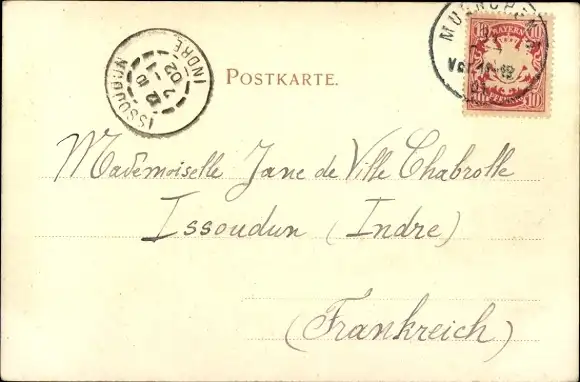 POSTKARTE.
ISSOUDUN
INDRE
02
BAYERN
10 10
PFENNIG
Mademoiselle Jane de Ville Chabrolle
Issoudun (Indre)
(Frankreich)